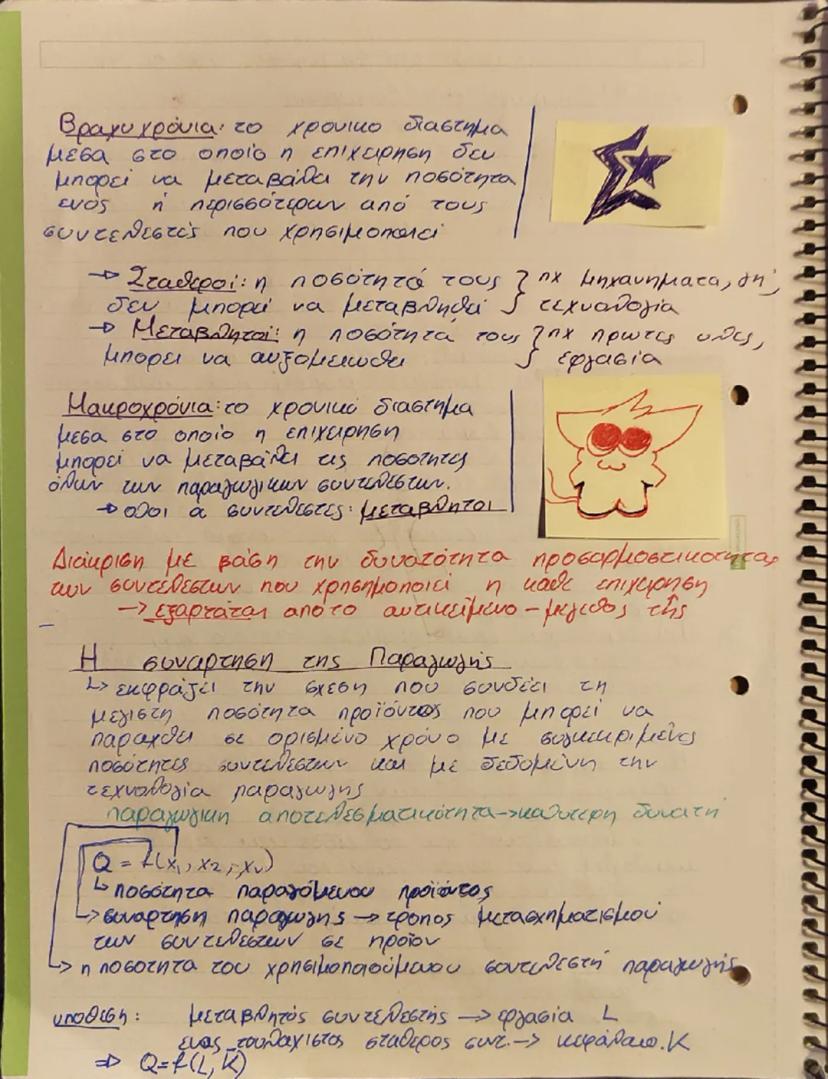 Βραχυχρόνια: το χρονικο διαστημα
μεσα στο οποίο η επιχειρηση δεν
μπορεί να μεταβάλλει την ποσότητα
ενός ή περισσότερων από τους
συντελεστές που χρησιμοποιεί
→ Σταθεροί: η ποσότητά τους } πχ μηχανηματα, γη,
δεν μπορεί να μεταβληθεί } τεχνολογία
→ Μεταβλητοί: η ποσότητά τους } πχ πρωτες υλες,
μπορει να αυξομειωθει } εργασία
Μακροχρόνια: το χρονικό διαστημα
μεσα στο οποίο η επιχειρηση
μπορεί να μεταβάλλει τις ποσοτητες
όλων των παραγωγικων συντελεστων.
→ ολοι οι συντελεστες: μεταβλητοι
Διάκριση με βάση την δυνατότητα προσαρμοστικοτητας
των συντελεστων που χρησημοποιεί η κάθε επιχειρηση
→ εξαρτάται από το αντικείμενο - μεγεθος της
Η συναρτηση της Παραγωγής
↳ εκφράζει την σχεση που συνδέει τη
μεγιστη ποσότητα προϊόντος που μπορεί να
παραχθει σε ορισμένο χρόνο με συγκεκριμένες
ποσότητες συντελεστων και με δεδομένη την
τεχνολογία παραγωγης
παραγωγικη αποτελεσματικότητα → καλυτερη δυνατή
Q = f(x₁, x₂, -, xᵥ)
↳ ποσότητα παραγόμενου προϊόντος
↳ συναρτηση παραγωγης → τρόπος μετασχηματισμού
των συντελεστων σε προϊον
↳ η ποσοτητα του χρησιμοποιούμενου συντελεστή παραγωγής
υποθεση: μεταβλητός συντελεστής → εργασία L
ενας τουλαχιστος σταθερος συντ. → κεφάλαιο. K
⇒ Q=f(L, K)